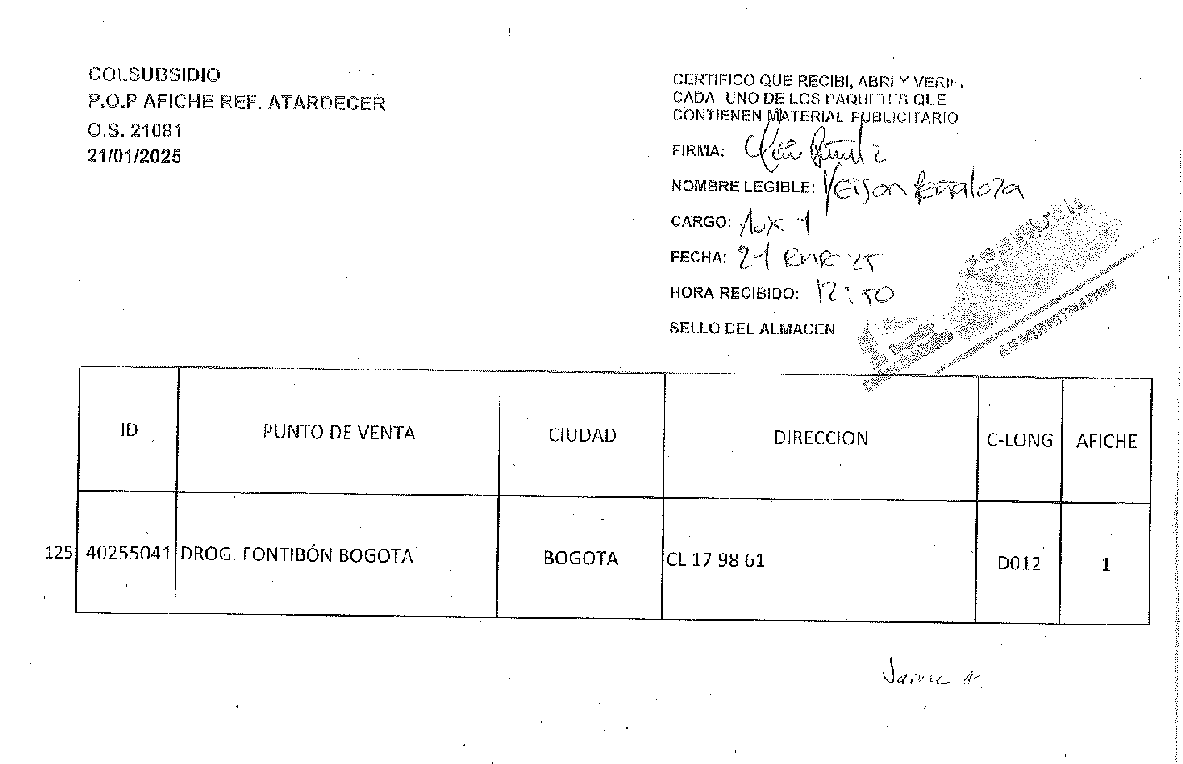 COLSUBSIDIO
P.O.P AFICHE REF. ATARDECER
O.S. 21081
21/01/2025
CERTIFICO QUE RECIBI, ABRI Y VERIF.
CADA UNO DE LOS PAQUETES QUE
CONTIENEN MATERIAL PUBLICITARIO
FIRMA:
NOMBRE LEGIBLE: Yeison Peñaloza
CARGO: Aux 1
FECHA: 21 ENE 25
HORA RECIBIDO: 12:50
SELLO DEL ALMACEN
ID PUNTO DE VENTA CIUDAD DIRECCION C-LONG AFICHE
125 40255041 DROG. FONTIBÓN BOGOTA BOGOTA CL 17 98 61 D012 1
Jaime